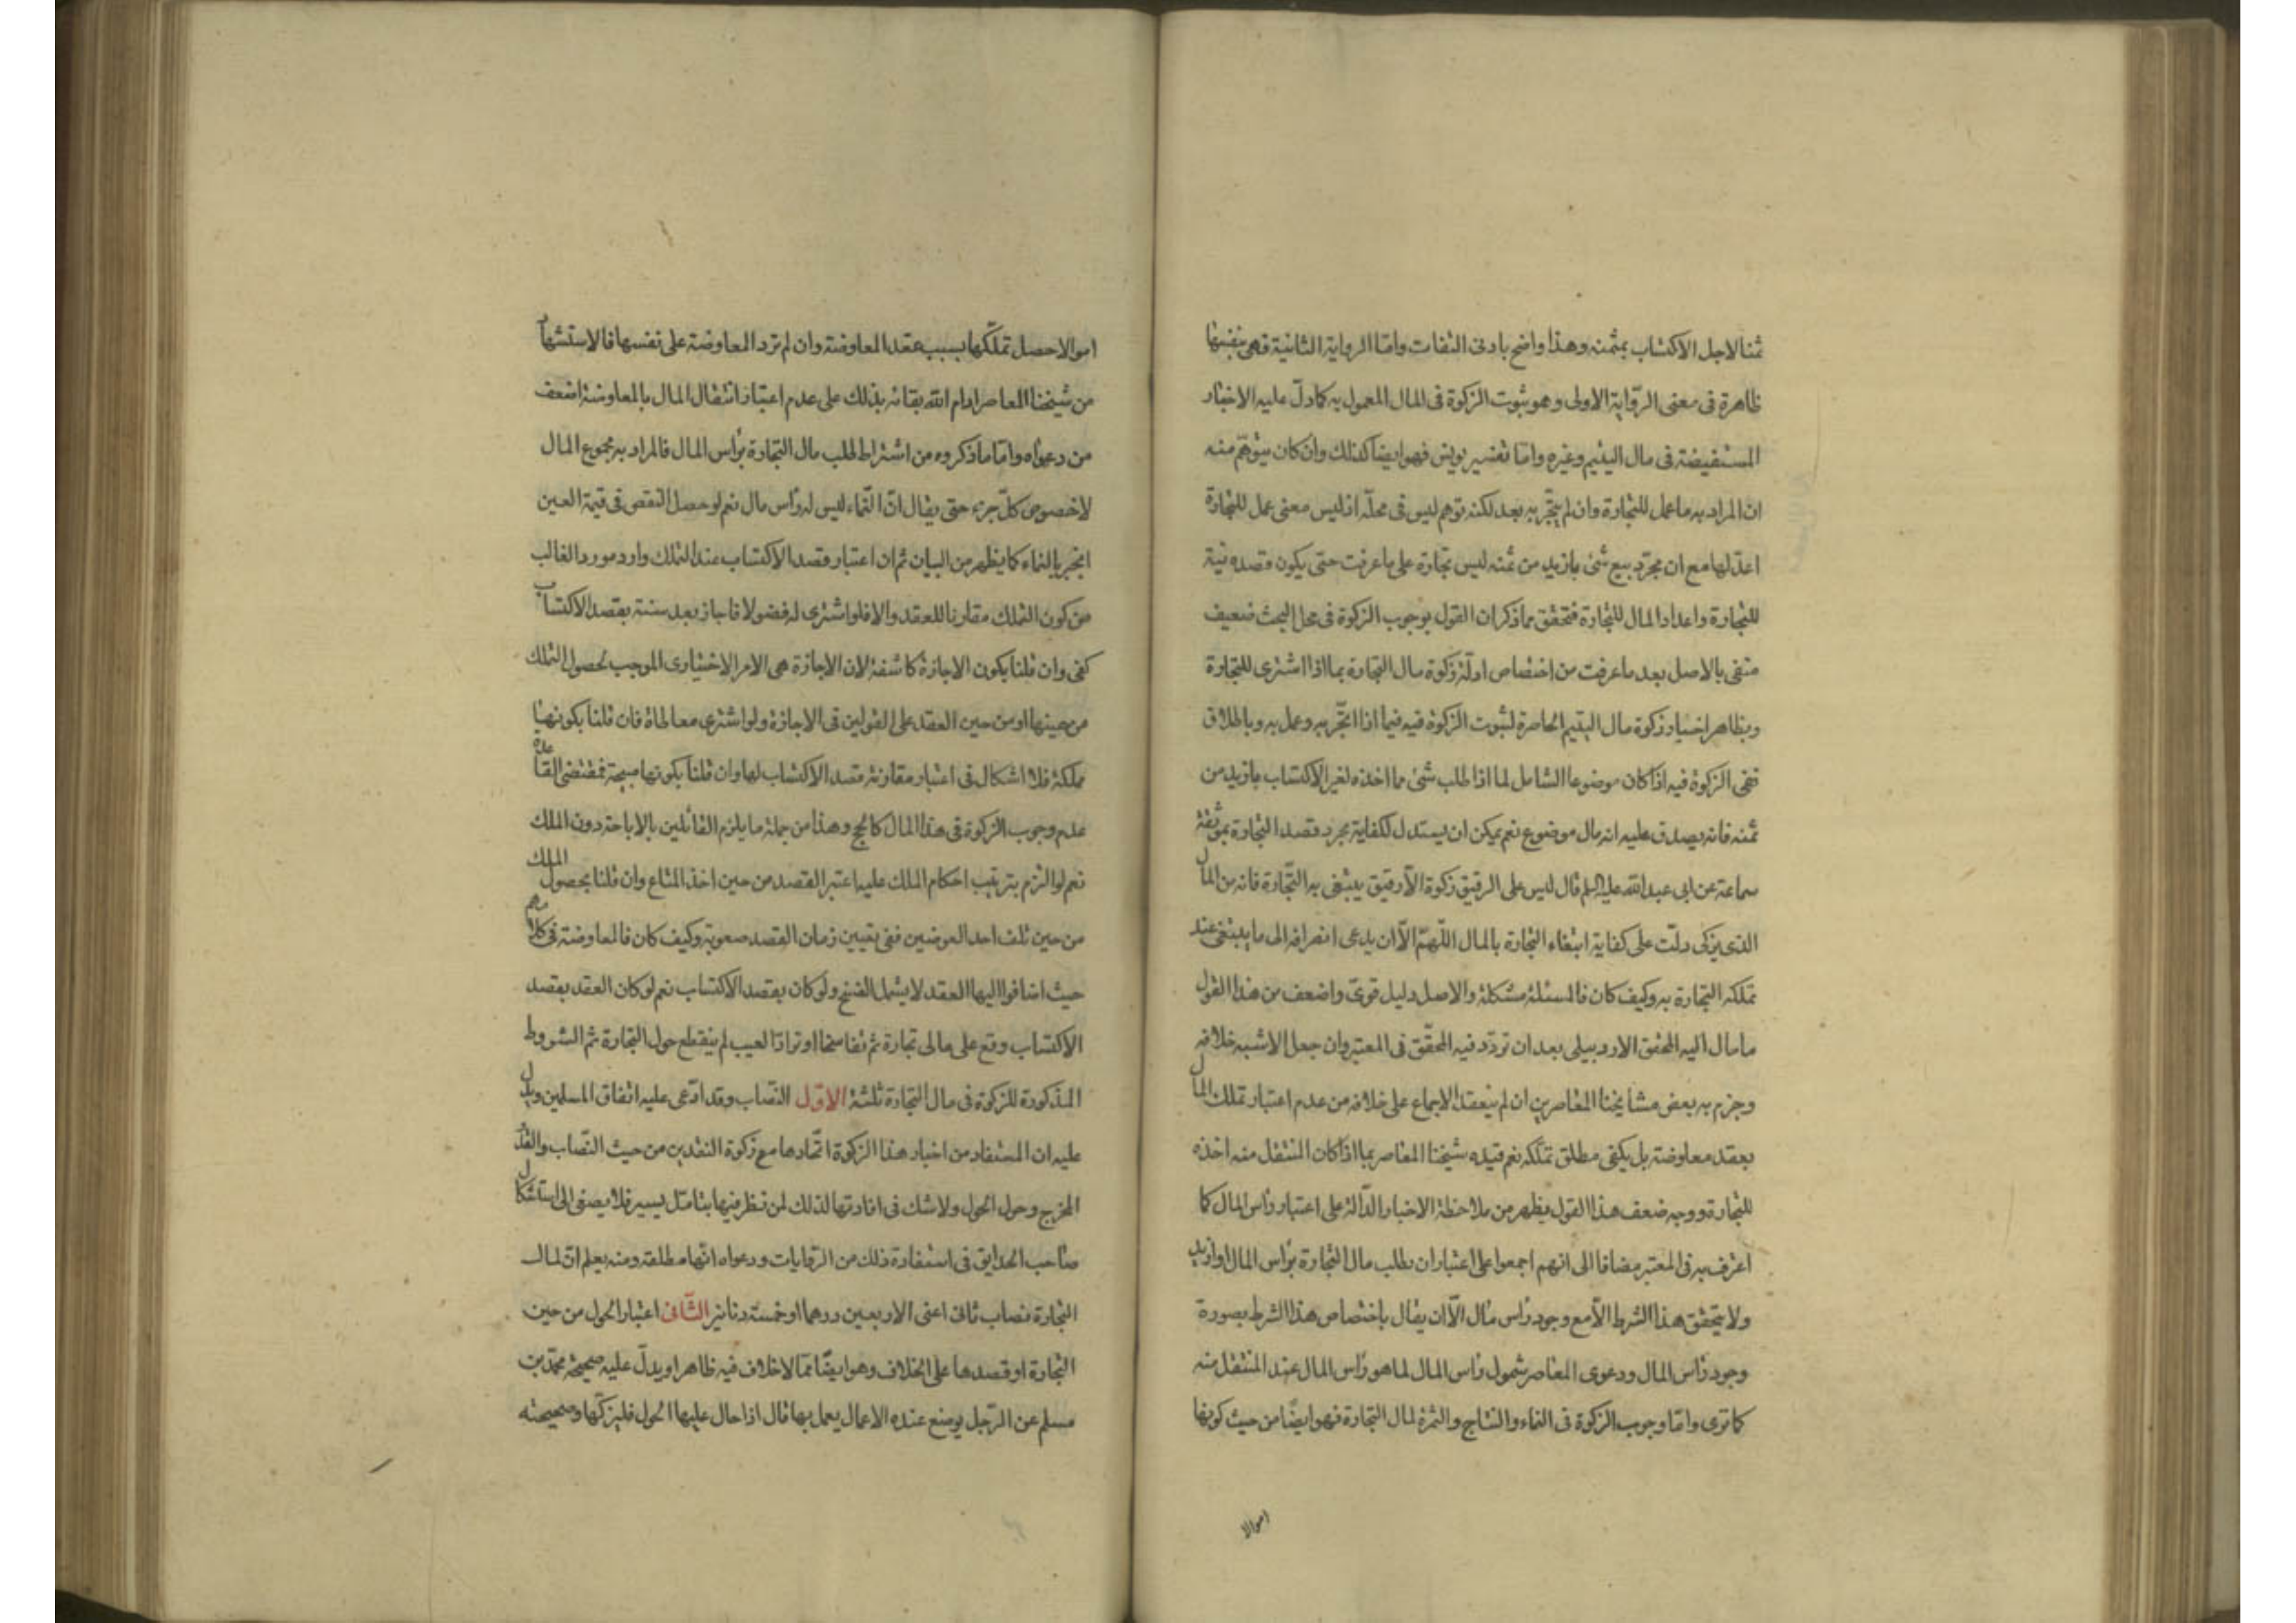 ثمنا لاجل الاكتساب بمثمنه وهذا واضح بادنى التفات وامّا الرواية الثانية فهى بنفسها
ظاهرة فى معنى الرّواية الاولى وهو ثبوت الزكوة فى المال المعمول به كما دلّ عليه الاخبار
المستفيضة فى مال اليتيم وغيره وامّا تفسير يونس فهو ايضا كذلك وان كان يتوهّم منه
ان المراد به ما عمل للتجارة وان لم يتّجر به بعد لكنه توهم ليس فى محلّه اذ ليس معنى عمل للتجارة
اعدّ لها مع ان مجرّد بيع شئ بازيد من ثمنه ليس تجارة على ما عرفت حتى يكون قصده نية
للتجارة واعداد المال للتجارة فتحقق مما ذكر ان القول بوجوب الزكوة فى محل البحث ضعيف
منفى بالاصل بعد ما عرفت من اختصاص ادلّة زكوة مال التجارة بما اذا اشترى للتجارة
وبظاهر اخبار زكوة مال اليتيم الحاصرة لثبوت الزكوة فيه فيما اذا اتّجر به وعمل به وباطلاق
نفى الزكوة فيه اذا كان موضوعا الشامل لما اذا طلب شئ مما اخذه لغير الاكتساب بازيد من
ثمنه فانه يصدق عليه انه مال موضوع نعم يمكن ان يستدل لكفاية مجرد قصد التجارة بموثقة
سماعة عن ابى عبد الله عليه السلم قال ليس على الرقيق زكوة الّا رقيق يبتغى به التّجارة فانه من المال
الذى يزكى دلّت على كفاية ابتغاء التجارة بالمال اللّهمّ الّا ان يدعى انصرافه الى ما يبتغى عند
تملكه التجارة به وكيف كان فالمسئلة مشكلة والاصل دليل قوىّ واضعف من هذا القول
ما مال اليه المحقق الاردبيلى بعد ان تردّد فيه المحقّق فى المعتبر وان جعل الاشبه خلافه
وجزم به بعض مشايخنا المعاصرين ان لم ينعقد الاجماع على خلافه من عدم اعتبار تملك المال
بعقد معاوضة بل يكفى مطلق تملّكه نعم قيده شيخنا المعاصر بما اذا كان المنتقل منه اخذه
للتجارة ووجه ضعف هذا القول يظهر من ملاحظة الاخبار الدّالة على اعتبار رأس المال كما
اعترف به فى المعتبر مضافا الى انهم اجمعوا على اعتبار ان يطلب مال التجارة برأس المال او ازيد
ولا يتحقق هذا الشرط الّا مع وجود راس مال الّا ان يقال باختصاص هذا الشرط بصورة
وجود رأس المال ودعوى المعاصر شمول رأس المال لما هو رأس المال عند المنتقل منه
كما ترى وامّا وجوب الزكوة فى النماء والنتاج والثمرة لمال التجارة فهو ايضًا من حيث كونها
اموالا
اموالا حصل تملّكها بسبب عقد المعاوضة وان لم ترد المعاوضة على نفسها فالاستشهاد
من شيخنا المعاصر ادام الله بقائه بذلك على عدم اعتبار انتقال المال بالمعاوضة اضعف
من دعواه وامّا ما ذكروه من اشتراط طلب مال التجارة برأس المال فالمراد به مجموع المال
لا خصوص كلّ جزء حتى يقال انّ النّماء ليس له رأس مال نعم لو حصل النقص فى قيمة العين
انجبر بالنماء كما يظهر من البيان ثم ان اعتبار قصد الاكتساب عند التملك وارد مورد الغالب
من كون التملك مقارنا للعقد والا فلو اشترى له فضولا فاجاز بعد سنة بقصد الاكتساب
كفى وان قلنا بكون الاجازة كاشفة لان الاجازة هى الامر الاختيارى الموجب لحصول التملك
من حينها او من حين العقد على القولين فى الاجازة ولو اشترى معاطاة فان قلنا بكونها
مملكة فلا اشكال فى اعتبار مقارنة قصد الاكتساب لها وان قلنا بكونها مبيحة فمقتضى القاعدة
عدم وجوب الزكوة فى هذا المال كالحج وهذا من جملة ما يلزم القائلين بالاباحة دون الملك
نعم لو التزم بترتيب احكام الملك عليه اعتبر القصد من حين اخذ المتاع وان قلنا بحصول الملك
من حين تلف احد العوضين ففى تعيين زمان القصد صعوبة وكيف كان فالمعاوضة فى كلامهم
حيث اضافوا اليها العقد لا يشمل الفسخ ولو كان بقصد الاكتساب نعم لو كان العقد بقصد
الاكتساب وقع على مالى تجارة ثم تفاسخا او ترادّا لعيب لم ينقطع حول التجارة ثم الشروط
المذكورة للزكوة فى مال التجارة ثلثة الاوّل النّصاب وقد ادّعى عليه اتفاق المسلمين ويدل
عليه ان المستفاد من اخبار هذا الزكوة اتّحادها مع زكوة النقدين من حيث النّصاب والقدر
المخرج وحول الحول ولا شك فى افادتها لذلك لمن نظر فيها بتامّل يسير فلا يصغى الى استشكال
صاحب الحدايق فى استفادة ذلك من الرّوايات ودعواه انّها مطلقة ومنه يعلم انّ لمال
التجارة نصاب ثانى اعنى الاربعين درهما او خمسة دنانير الثّانى اعتبار الحول من حين
التجارة او قصدها على الخلاف وهو ايضًا ممّا لا خلاف فيه ظاهرا ويدلّ عليه صحيحة محمّد بن
مسلم عن الرّجل يوضع عنده الاعمال يعمل بها قال اذا حال عليها الحول فليزكّها وصحيحته